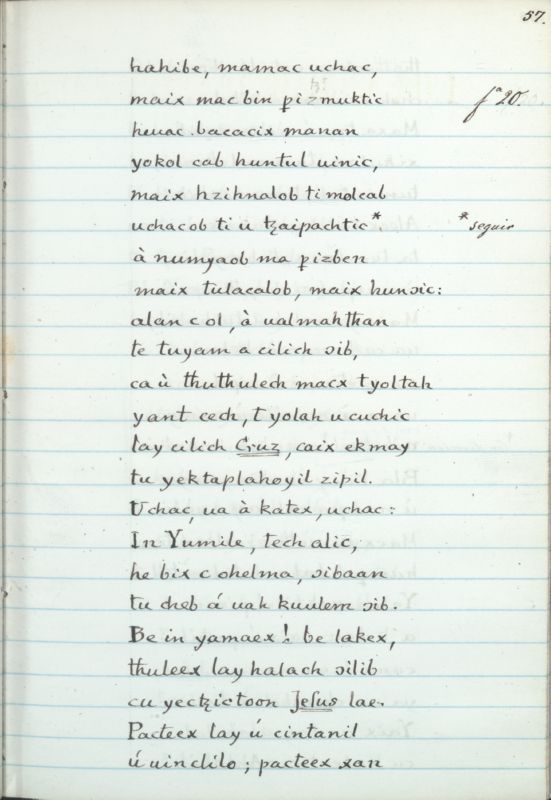 57.
hahibe, mamac uchac,
maix mac bin pizmuktic
fª 20.
heuac bacacix manan
yokol cab huntul uinic,
maix hzihnalob ti molcab
uchacob ti ù tzaipachtic*.
* seguir
à numyaob ma pizben
maix tulacalob, maix hunɔic:
alan c ol, à ualmahthan
te tuyam a cilich ɔib,
ca ù thuthulech macx tyoltah
yant cech, t yolah u cuchic
lay cilich Cruz, caix ekmay
tu yektaplahoyil zipil.
Uchac, ua à katex, uchac:
In Yumile, tech alic,
he bix c ohelma, ɔibaan
tu cheb á uah kuulem ɔib.
Be in yamaex! be lakex,
thuleex lay halach ɔilib
cu yectzictoon Jesus lae.
Pacteex lay ú cintanil
ú uinclilo; pacteex xan